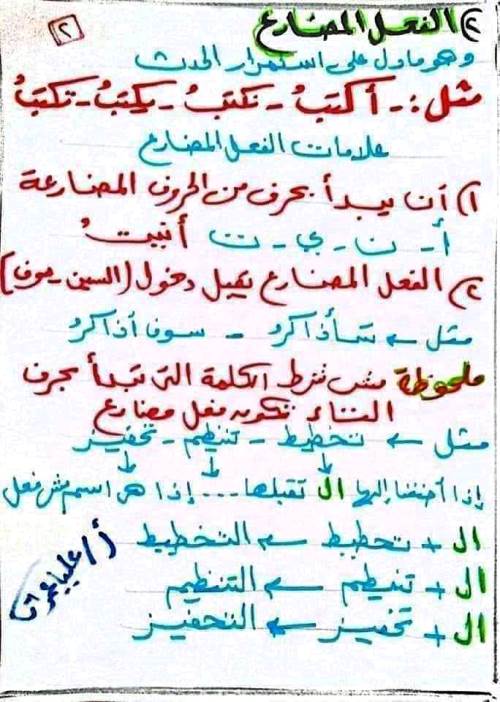 ٢) الفعل المضارع
٢
وهو ما دل على استمرار الحدث
مثل :- أكتبُ - نكتبُ - يكتبُ - تكتبُ
علامات الفعل المضارع
١) أن يبدأ بحرف من الحروف المضارعة
أ - ن - ي - ت أنيتُ
٢) الفعل المضارع يقبل دخول (السين - سوف)
مثل ← سأذاكر - سوف أذاكر
ملحوظة مش شرط الكلمة التى تبدأ بحرف
التاء تكون فعل مضارع
مثل ← تخطيط - تنظيم - تحفيز
إذا أضفنا إليها ال تقبلها ... إذا هى اسم مش فعل
ال + تخطيط ← التخطيط
ال + تنظيم ← التنظيم
ال + تحفيز ← التحفيز
أ/ علياء